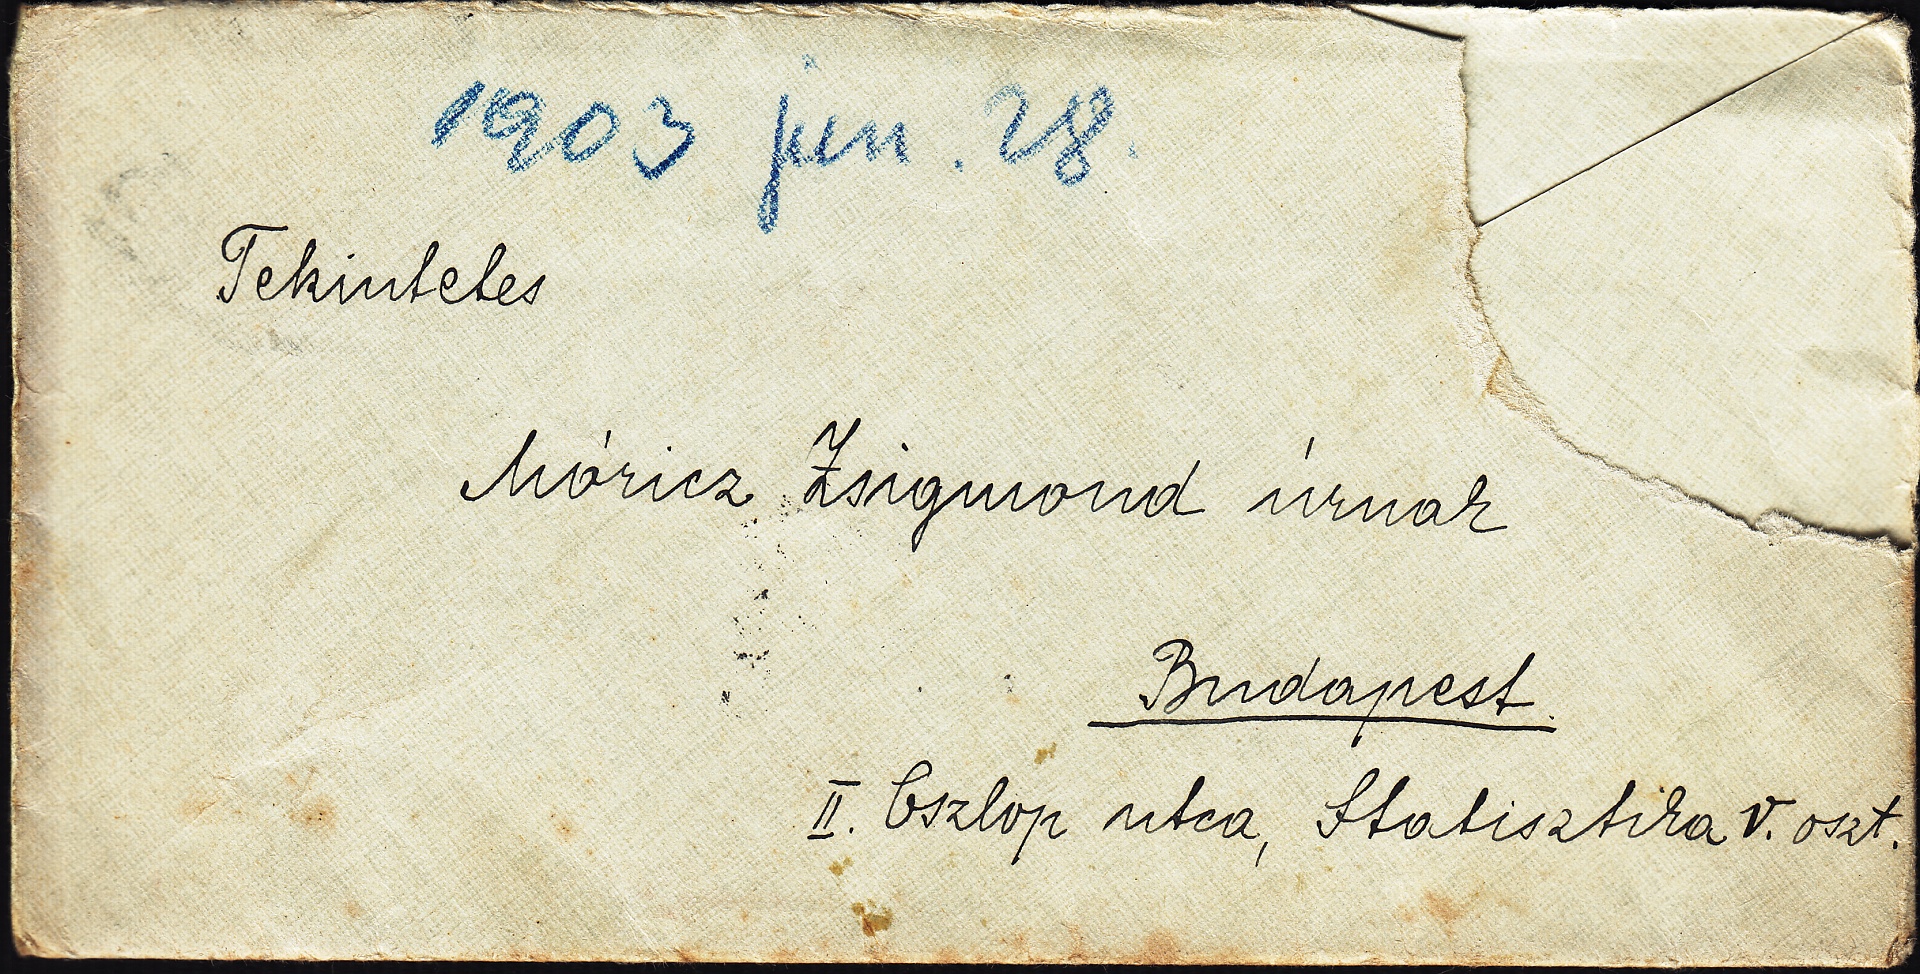 1903 jun. 28.
Tekintetes
Móricz Zsigmond úrnak
Budapest.
II. Oszlop utca, Statisztika V. oszt.